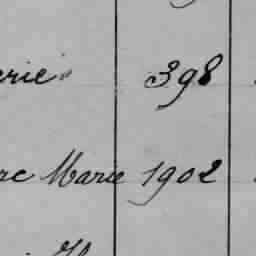 erie 398
re Marie 1902